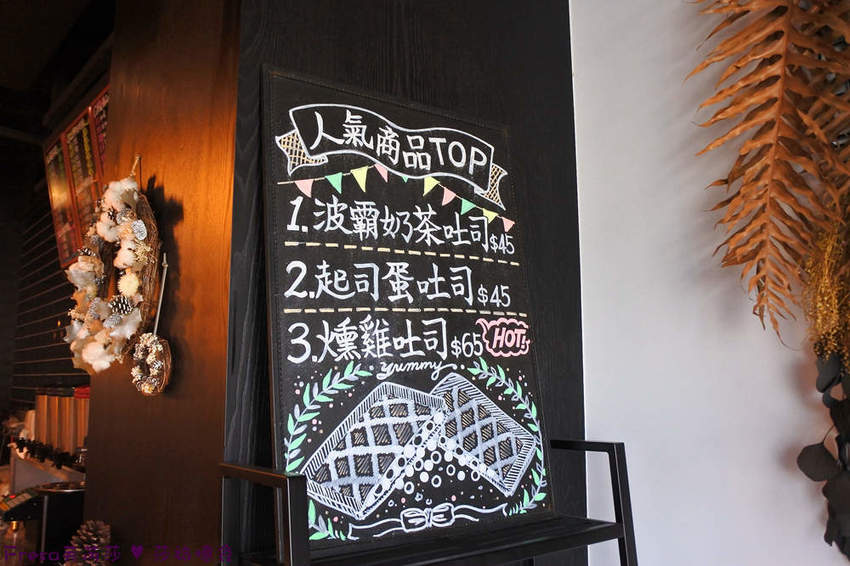 人氣商品TOP
1.波霸奶茶吐司$45
2.起司蛋吐司$45
3.燻雞吐司$65 HOT!
yummy